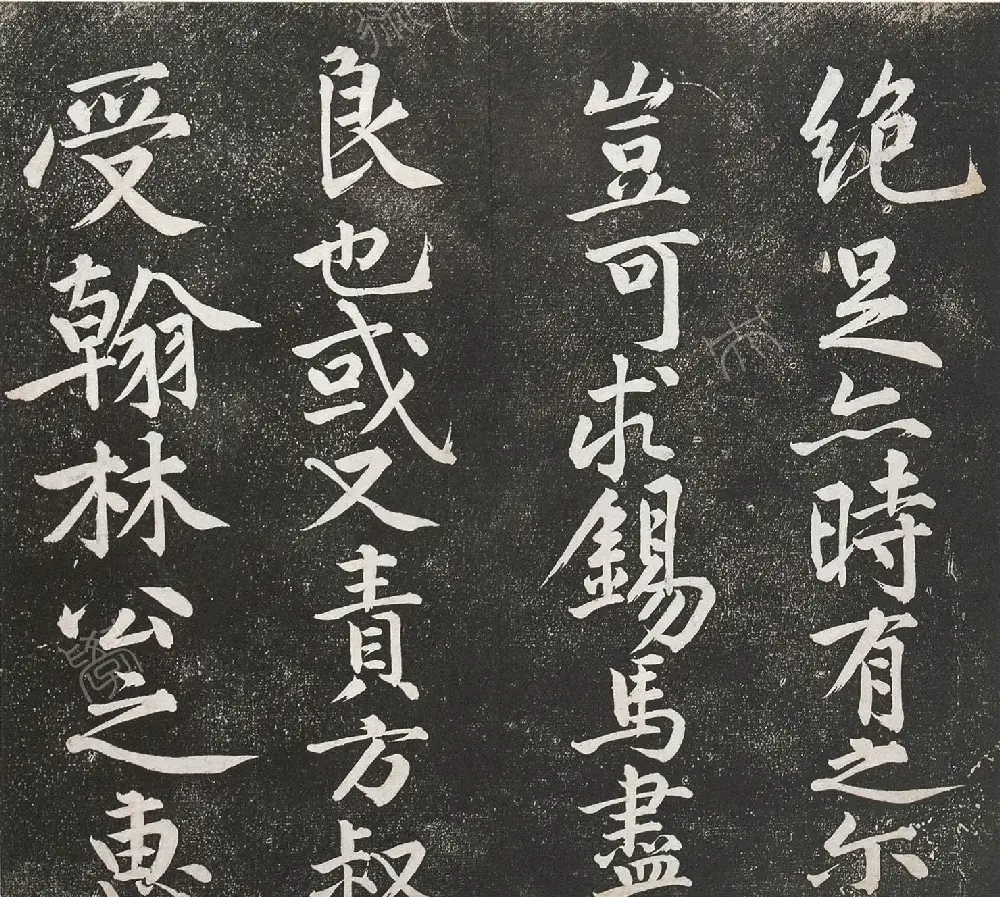 绝足亦時有之尔
豈可求錫馬盡
良也或又責方叔
受翰林公之惠